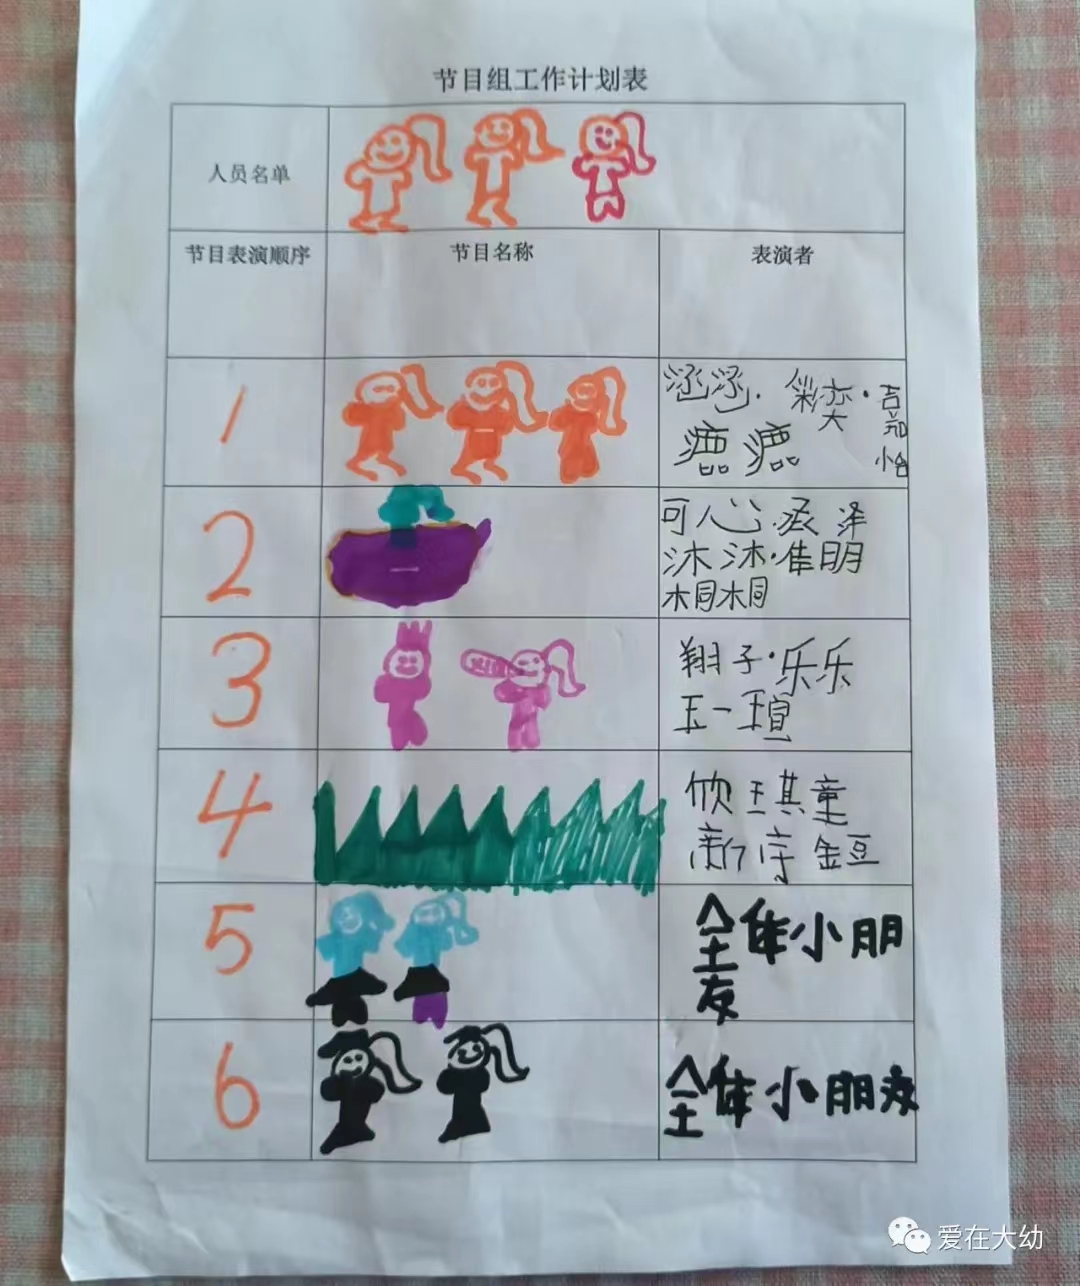 节目组工作计划表
人员名单
节目表演顺序 节目名称 表演者
1 涵涵·彩奕·嘉怡
2 可人心·丞泽
沐沐·佳明
桐桐
3 翔子·乐乐
王一瑄
4 欣 王其童
新宇 金豆
5 全体小朋
友
6 全体小朋友
爱在大幼